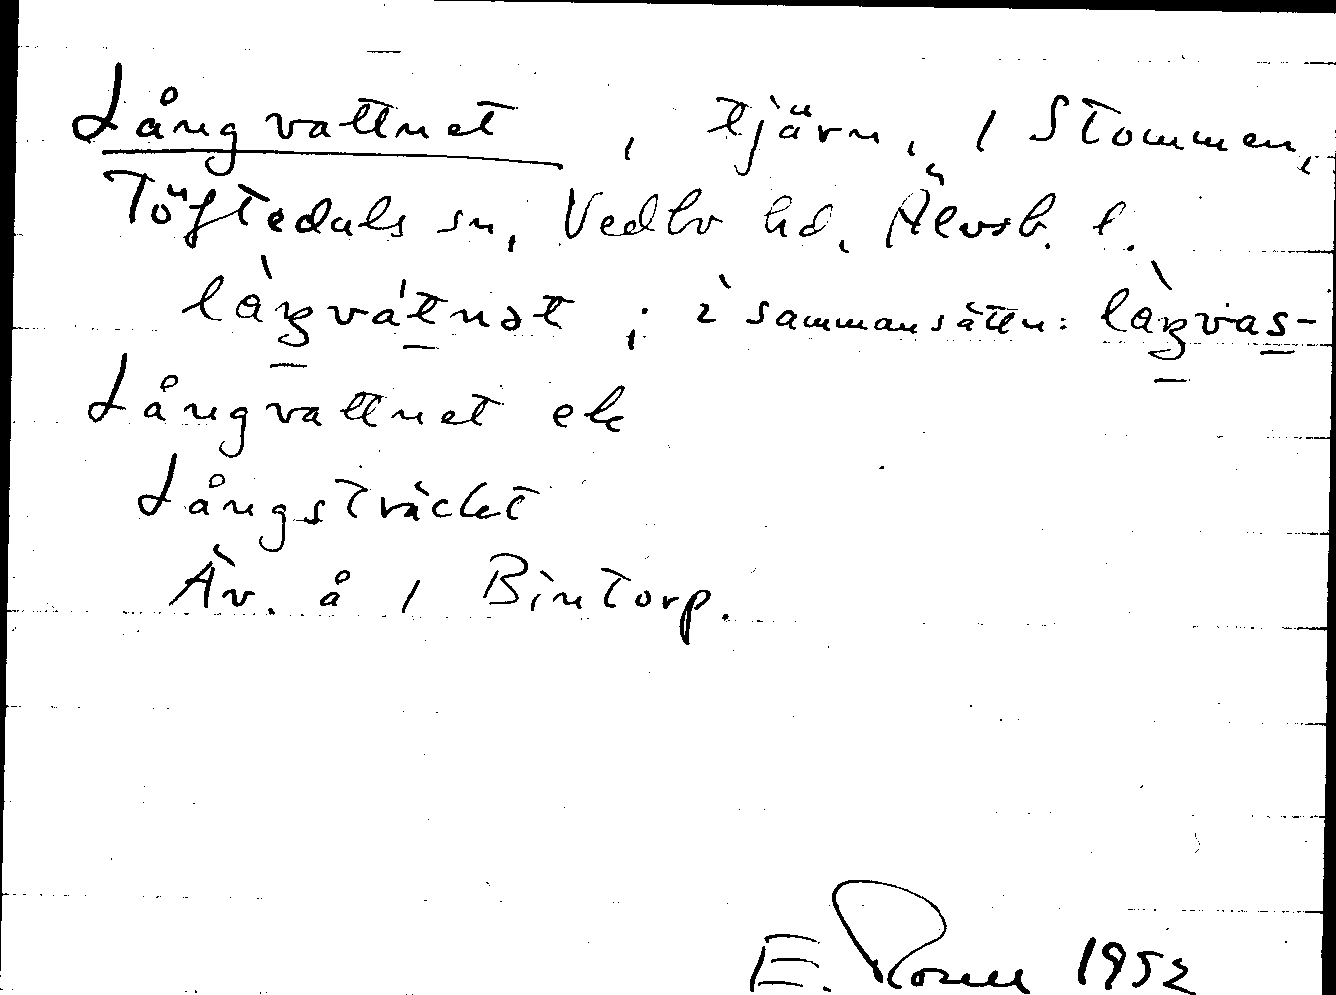 Långvattnet, tjärn, / Stommen,
Töftedals sn, Vedbo hd, Älvsb. l.
låŋvátnət ; i sammansättn: låŋvas-
Långvattnet el
Långsträcket
Äv. å / Bintorp.
E. 1952